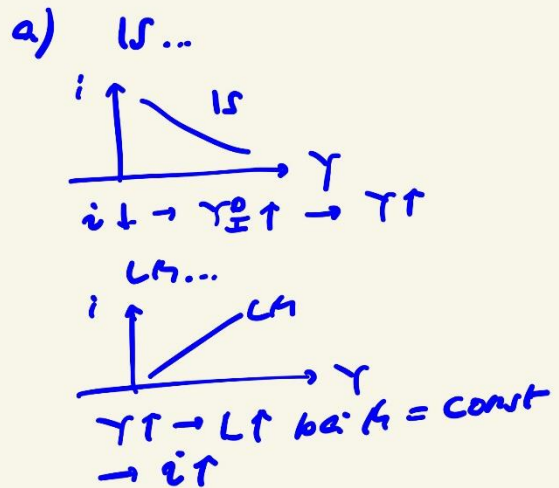 a) IS...
i
IS
Y
i ↓ → Y^D_I ↑ → Y↑
LM...
i
LM
Y
Y↑ → L↑ bei M = const
→ i↑